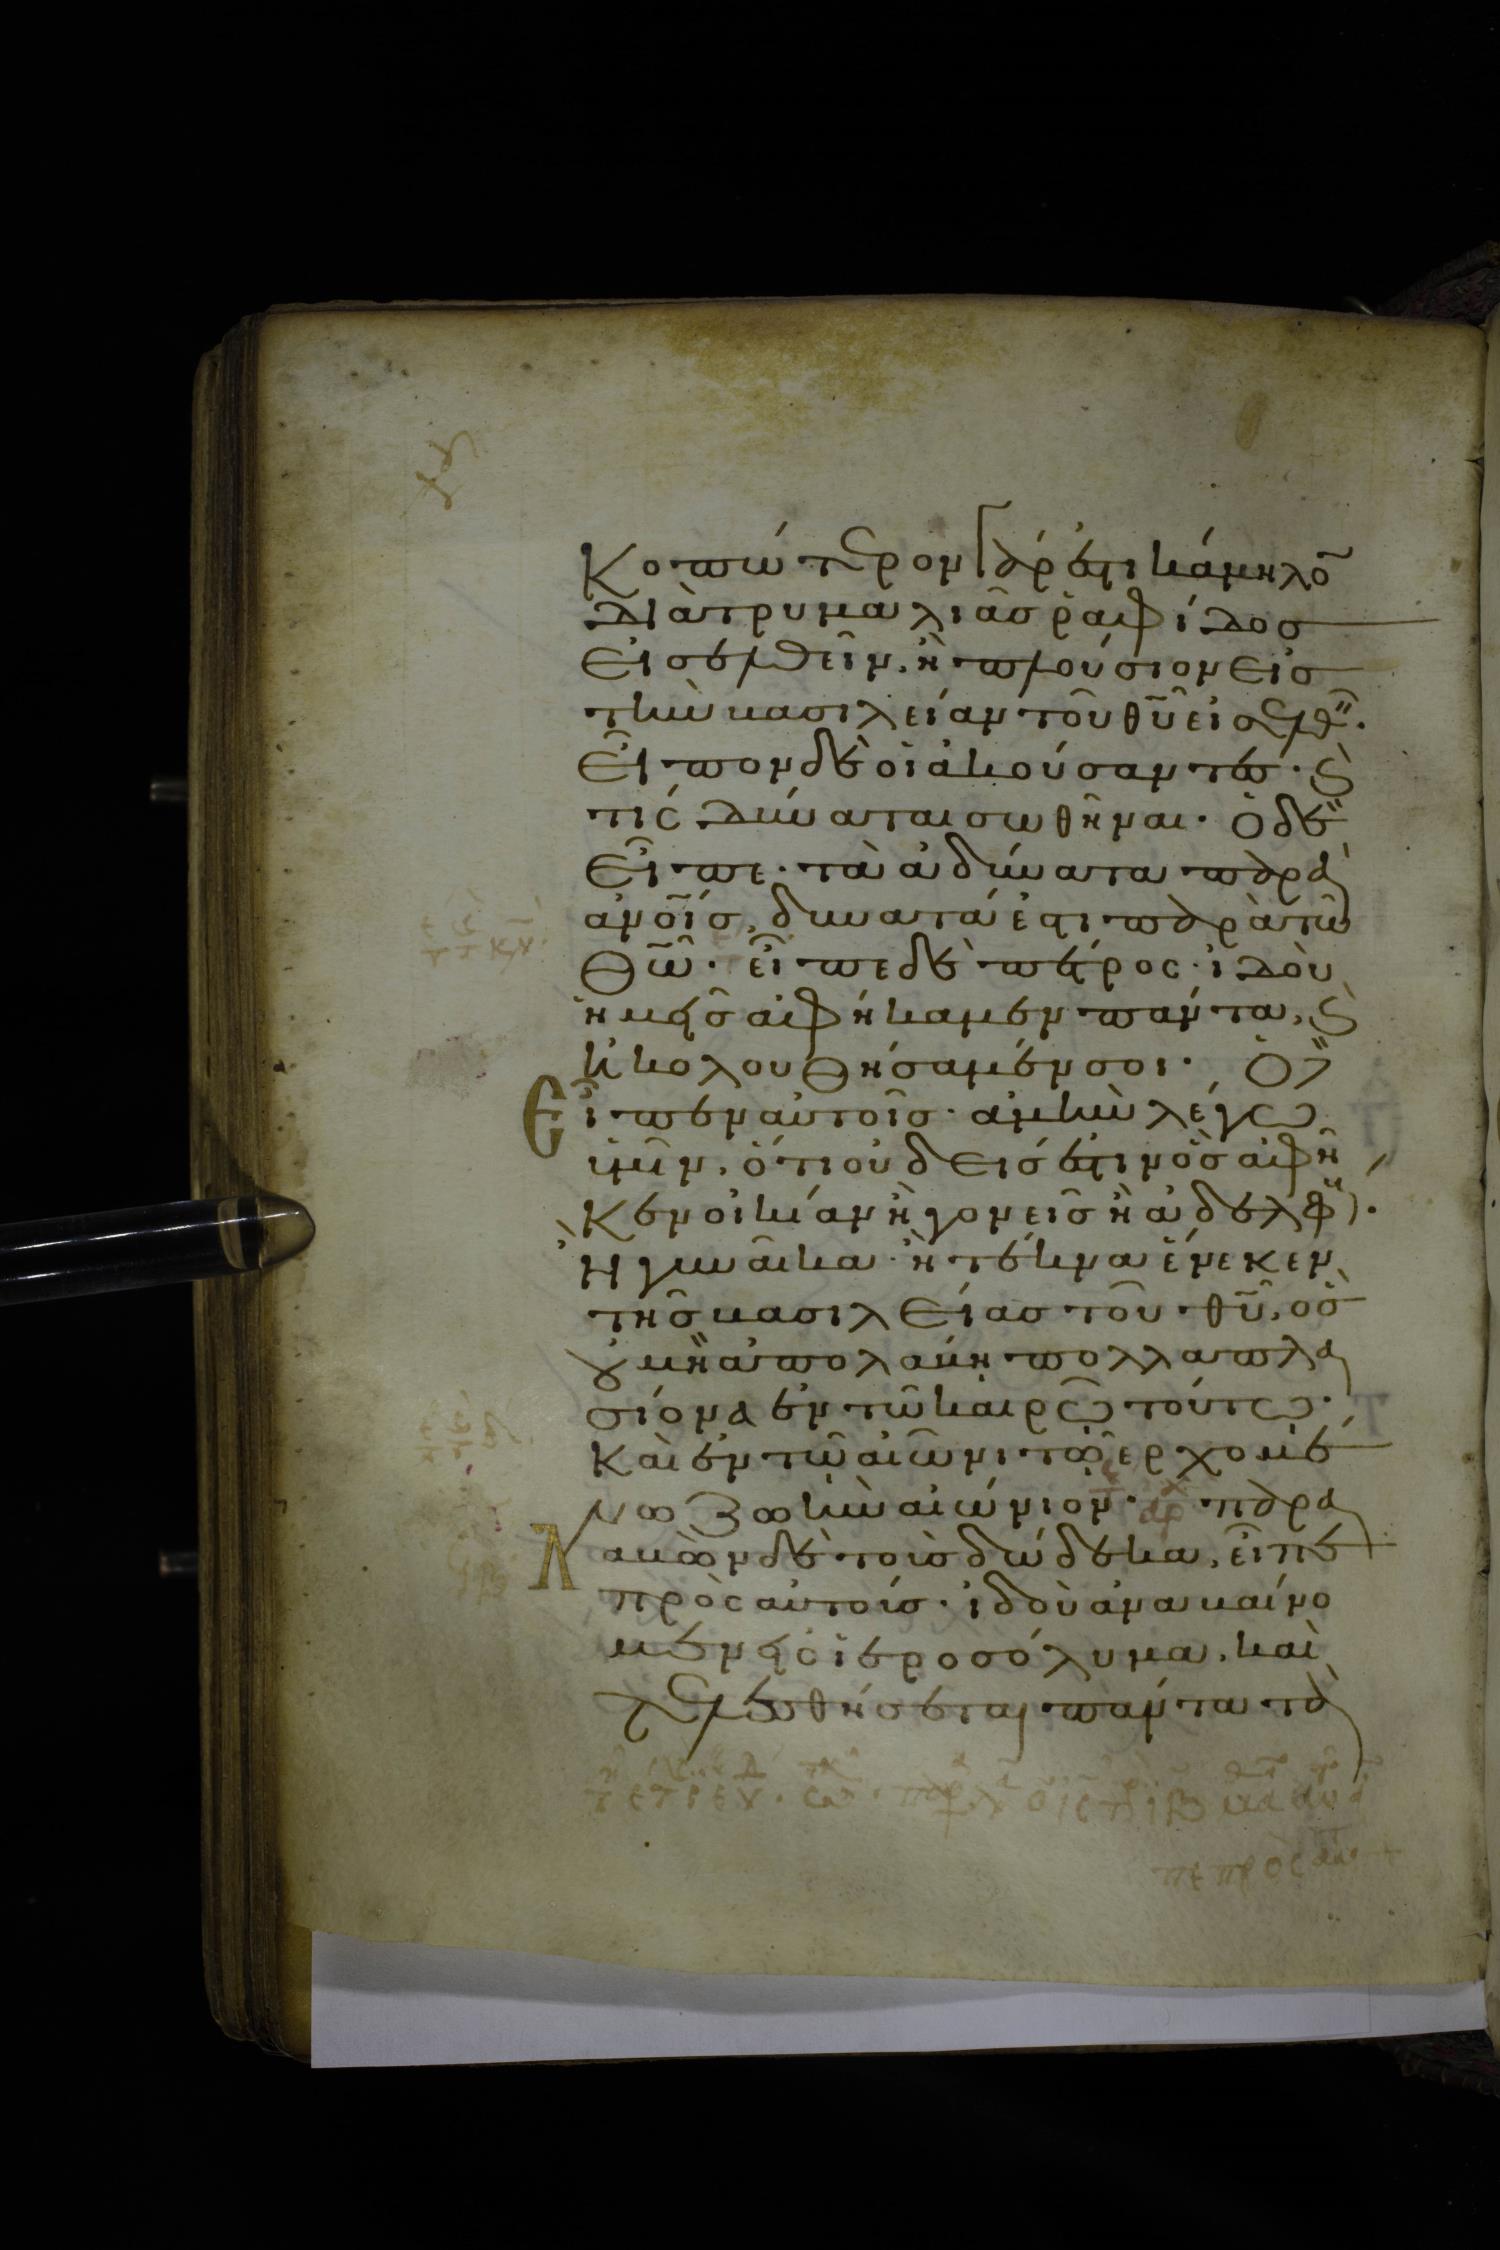 Κοπώτερον γάρ ἐστι κάμηλο̅
διὰ τρυμαλιᾶς ῥαφίδος
εἰσελθεῖν, ἢ πλούσιον εἰς
τὴν βασιλείαν τοῦ θ̅υ̅ εἰσελθ.
εἶπον δὲ οἱ ἀκούσαντες· ϗ
τίς δύναται σωθῆναι· ὁ δὲ
εἶπε· τὰ ἀδύνατα παρὰ
α̅ν̅ο̅ι̅ς̅, δυνατά ἐστι παρὰ τῶ
θ̅ω̅· εἶπε δὲ πέτρος· ἰδοὺ
ἡμεῖς ἀφήκαμεν πάντα, ϗ
ἠκολουθήσαμέν σοι· ὁ δὲ
εἶπεν αὐτοῖς· ἀμὴν λέγω
ὑμῖν, ὅτι οὐδείς ἐστιν ὃς ἀφῆ
κεν οἰκίαν ἢ γονεῖς ἢ ἀδελφ.
ἢ γυναῖκα· ἢ τέκνα ἕνεκεν
τῆς βασιλείας τοῦ θ̅υ̅, ὃς
οὐ μὴ ἀπολάβη πολλαπλα
σίονα ἐν τῶ καιρῶ τούτω·
καὶ ἐν τῶ αἰῶνι τῶ ἐρχομέ
νω ζωὴν αἰώνιον· αρχ παρα
λαβὼν δὲ τοὺς δώδεκα, εἶπε
πρὸς αὐτούς· ἰδοὺ ἀναβαίνο
μεν εἰς ἱεροσόλυμα, καὶ
τελεσθήσεται πάντα τὰ